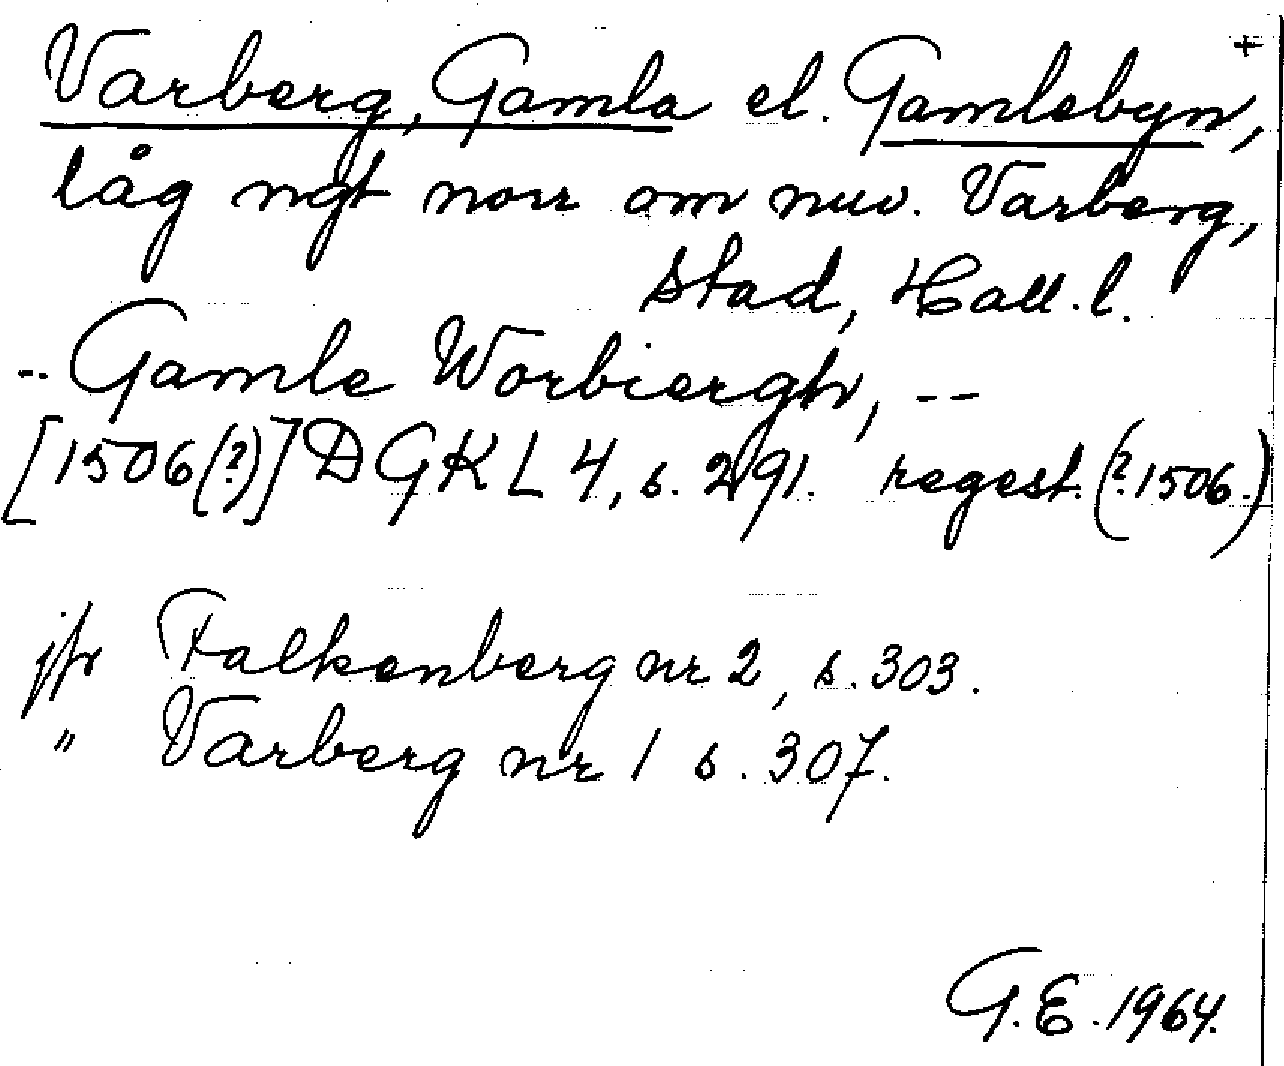 Varberg, Gamla el. Gamlebyn, +
låg ngt norr om nuv. Varberg,
stad, Hall. l.
-- Gamle Worbiergh, --
[1506(?)] DGKL 4, s. 291. regest. (? 1506.)
jfr Falkenberg nr 2, s. 303.
" Varberg nr 1 s. 307.
G.E. 1964.